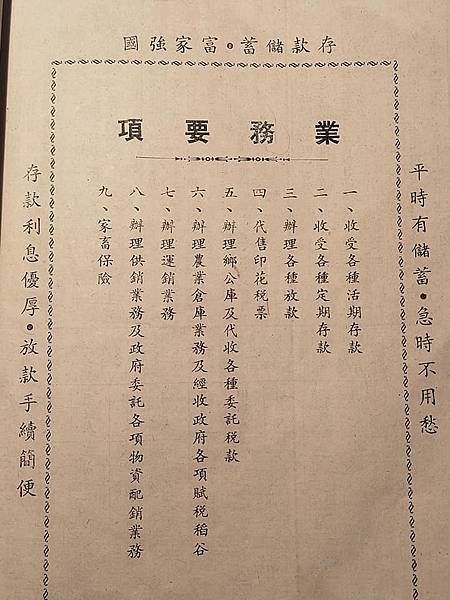 存款儲蓄•富家強國
業務要項
平時有儲蓄•急時不用愁
一、收受各種活期存款
二、收受各種定期存款
三、辦理各種放款
四、代售印花稅票
五、辦理鄉公庫及代收各種委託稅款
六、辦理農業倉庫業務及經收政府各項賦稅稻谷
七、辦理運銷業務
八、辦理供銷業務及政府委託各項物資配銷業務
九、家畜保險
存款利息優厚•放款手續簡便